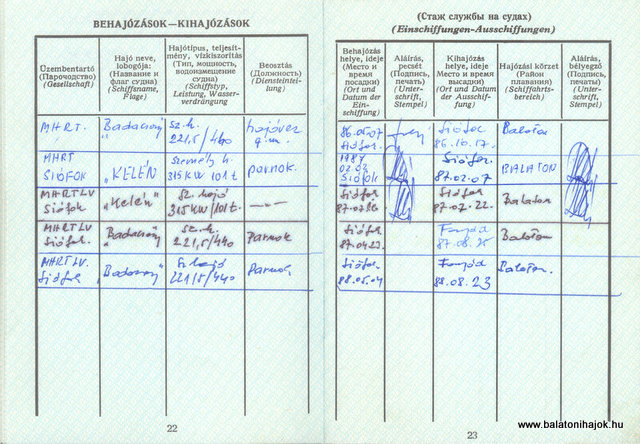 BEHAJÓZÁSOK—KIHAJÓZÁSOK
Üzembentartó
(Пароходство)
(Gesellschaft)
Hajó neve,
lobogója:
(Название и
флаг судна)
(Schiffsname,
Flage)
Hajótípus, teljesít-
mény, vízkiszorítás
(Тип, мощность,
водоизмещение
судна)
(Schiffstyp,
Leistung, Wasser-
verdrängung
Beosztás
(Должность)
(Diensteintei-
lung)
MHRT. "Badacsony" sz.h. 221,5/440 hajóvez
MHRT SIÓFOK "KELÉN" személy h. 315 KW 101 t. Parnok.
MHRT LV Siófok "Kelén" sz. hajó 315 KW/101 t. —"—
MHRT LV Siófok. "Badacsony" sz.h. 221,5/440 Parnok
MHRT LV. Siófok "Badacsony" Sz.hajó 221,5/440 Parnok
22
(Стаж службы на судах)
(Einschiffungen-Ausschiffungen)
Behajózás
helye, ideje
(Место и
время
посадки)
(Ort und
Datum der
Ein-
schiffung)
Aláírás,
pecsét
(Подпись,
печать)
(Unter-
schrift,
Stempel)
Kihajózás
helye, ideje
Место и время
высадки)
(Ort und Datum
der Ausschif-
fung)
Hajózási körzet
(Район
плавания)
(Schiffahrts-
bereich)
Aláírás,
bélyegző
(Подпись,
печаты)
(Unter-
schrift,
Stempel)
86.05.07 Siófok. Siófok 86.10.17. Balaton
1987 02.02 SIÓFOK Siófok. 87.02.07 BALATON
Siófok Siófok 87.07.22. Balaton
Siófok 87.04.23. Fonyód Balaton
Siófok 88.05.04 Fonyód 88.08.23 Balaton.
23
www.balatonihajok.hu